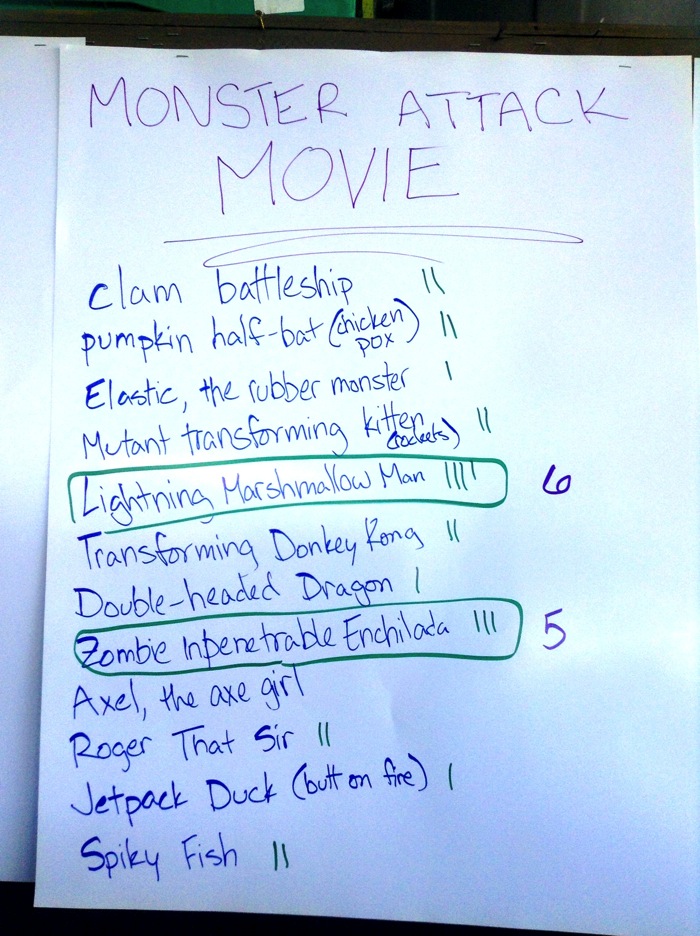 MONSTER ATTACK
MOVIE
clam battleship ||
pumpkin half-bat (chicken pox) ||
Elastic, the rubber monster |
Mutant transforming kitten (rockets) ||
Lightning Marshmallow Man |||| 6
Transforming Donkey Kong ||
Double-headed Dragon |
Zombie Inpenetrable Enchilada ||| 5
Axel, the axe girl
Roger That Sir ||
Jetpack Duck (butt on fire) |
Spiky Fish ||